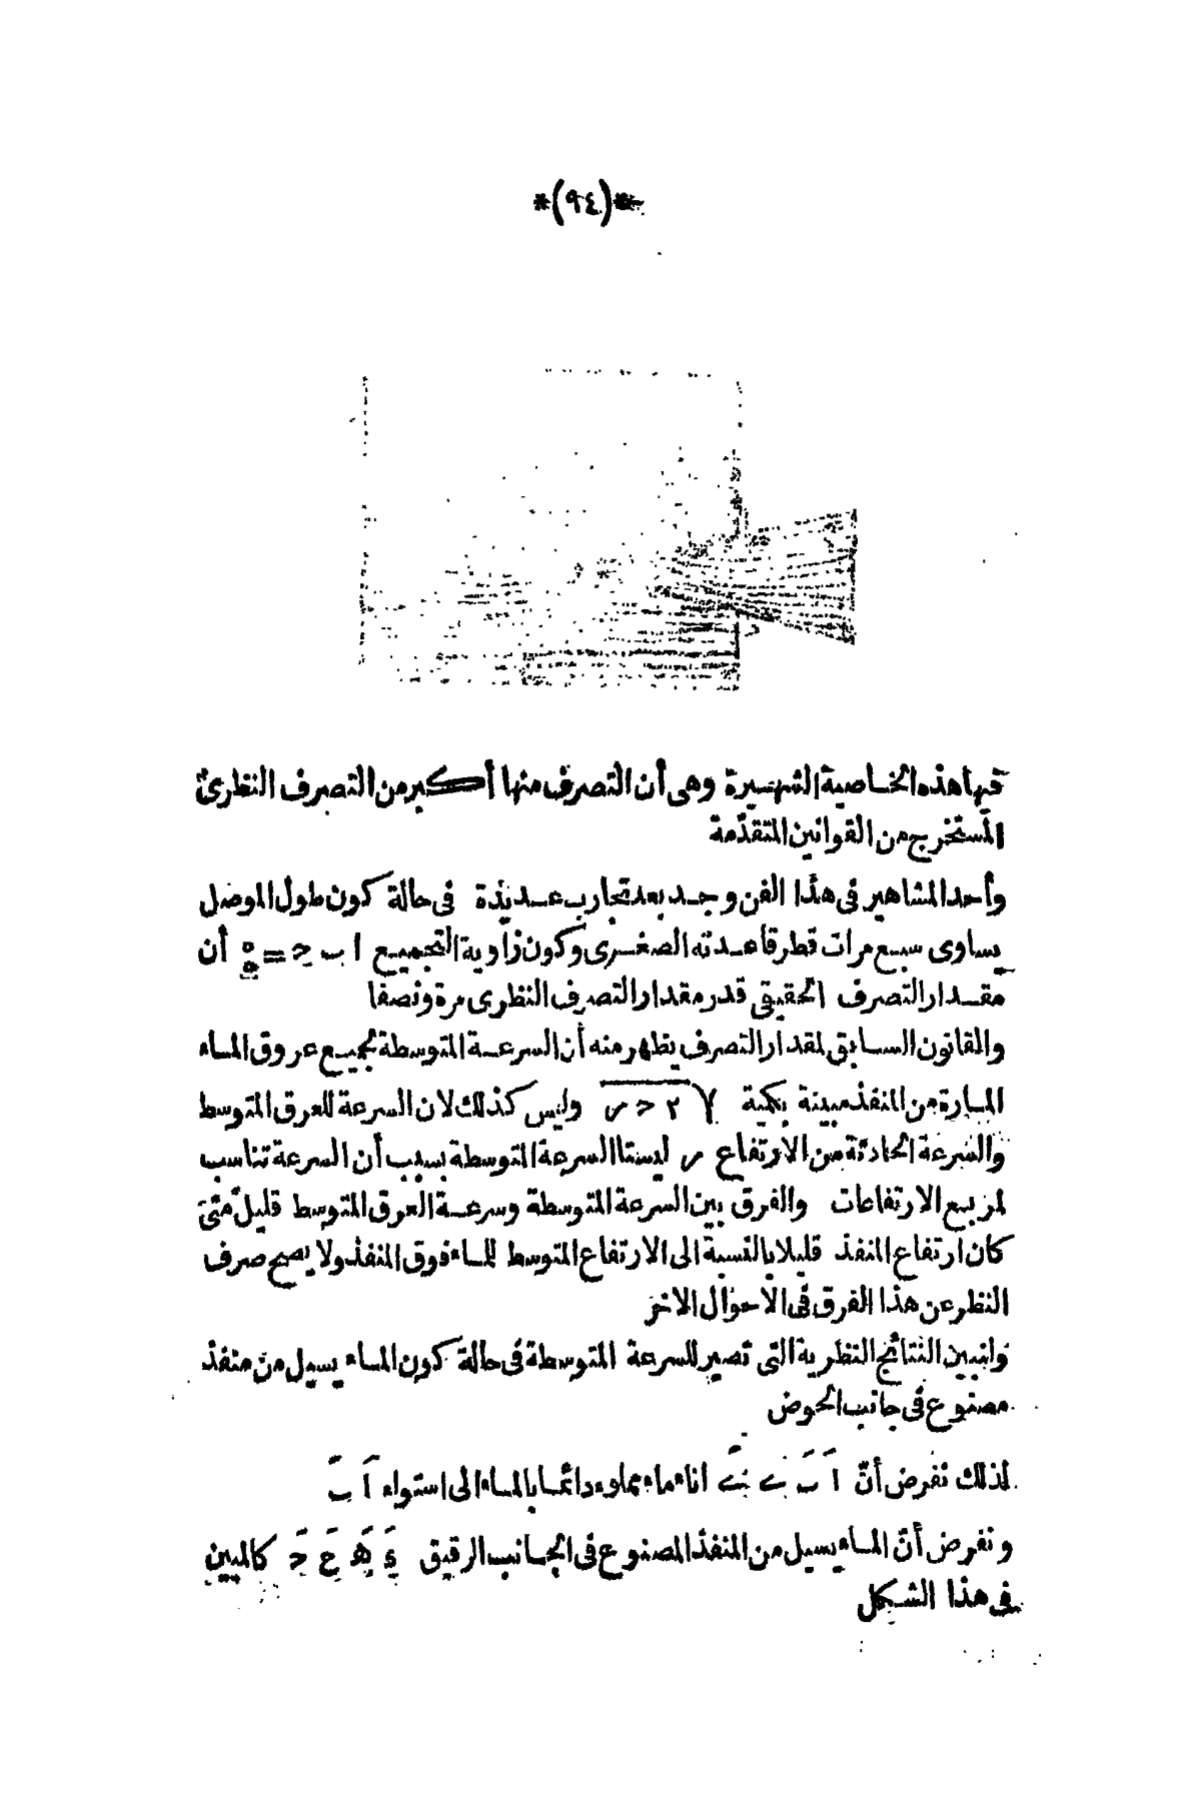 *(٩٤)*
فيها هذه الخاصية الشهيرة وهى أن التصرف منها أكبر من التصرف النظرىّ
المستخرج من القوانين المتقدّمة
وأحد المشاهير فى هذا الفن وجد بعد تجارب عديدة فى حالة كون طول الموصل
يساوى سبع مرات قطر قاعدته الصغرى وكون زاوية التجميع ا ب ح = أن
مقدار التصرف الحقيقى قدر مقدار التصرف النظرى مرة ونصفا
والقانون السابق لمقدار التصرف يظهر منه أن السرعة المتوسطة لجميع عروق الماء
المارة من المنفذ مبينة بكمية √٢ ح ر وليس كذلك لان السرعة للعرق المتوسط
والسرعة الحادثة من الارتفاع ر ليستا السرعة المتوسطة بسبب أن السرعة تناسب
لمربع الارتفاعات والفرق بين السرعة المتوسطة وسرعة العرق المتوسط قليل متى
كان ارتفاع المنفذ قليلا بالنسبة الى الارتفاع المتوسط للماء فوق المنفذ ولا يصح صرف
النظر عن هذا الفرق فى الاحوال الاخر
ولنبين النتائج النظرية التى تصير للسرعة المتوسطة فى حالة كون الماء يسيل من منفذ
مصنوع فى جانب الحوض
لذلك نفرض أنّ اَ بَ اناء ماء مملوء دائما بالماء الى استواء اَ بَ
ونفرض أنّ الماء يسيل من المنفذ المصنوع فى الجانب الرقيق كالمبين
فى هذا الشكل